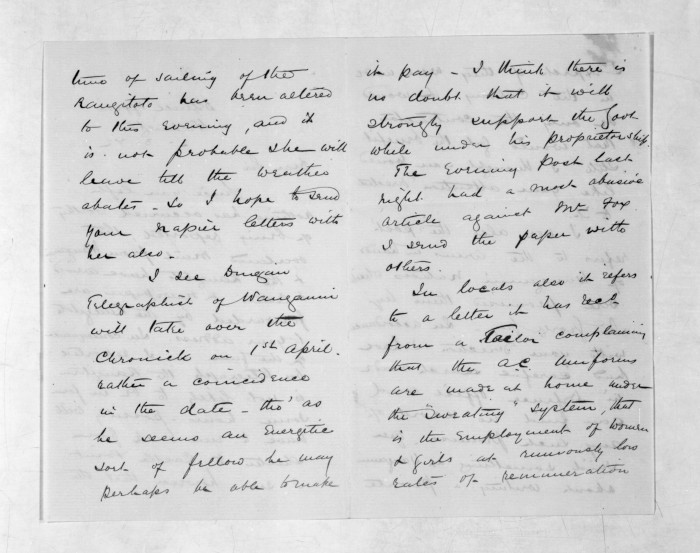 time of sailing of the
Rangitoto has been altered
to this evening, and it
is not probable she will
leave till the weather
abates. So I hope to send
your Napier letters with
her also.
I see Dungan
Telegraphist of Wanganui
will take over the
Chronicle on 1st April.
rather a coincidence
in the date - tho' as
he seems an Energetic
sort of fellow he may
perhaps be able to make
it pay - I think there is
no doubt that it will
strongly support the Govt
while under his proprietorship.
The Evening Post last
night had a most abusive
article against Mr Fox
I send the paper with
others.
In locals also it refers
to a letter it has recd
from a Tailor complaining
that the A.C. Uniforms
are made at home under
the "Sweating" system, that
is the Employment of women
& girls at ruinously low
rates of remuneration